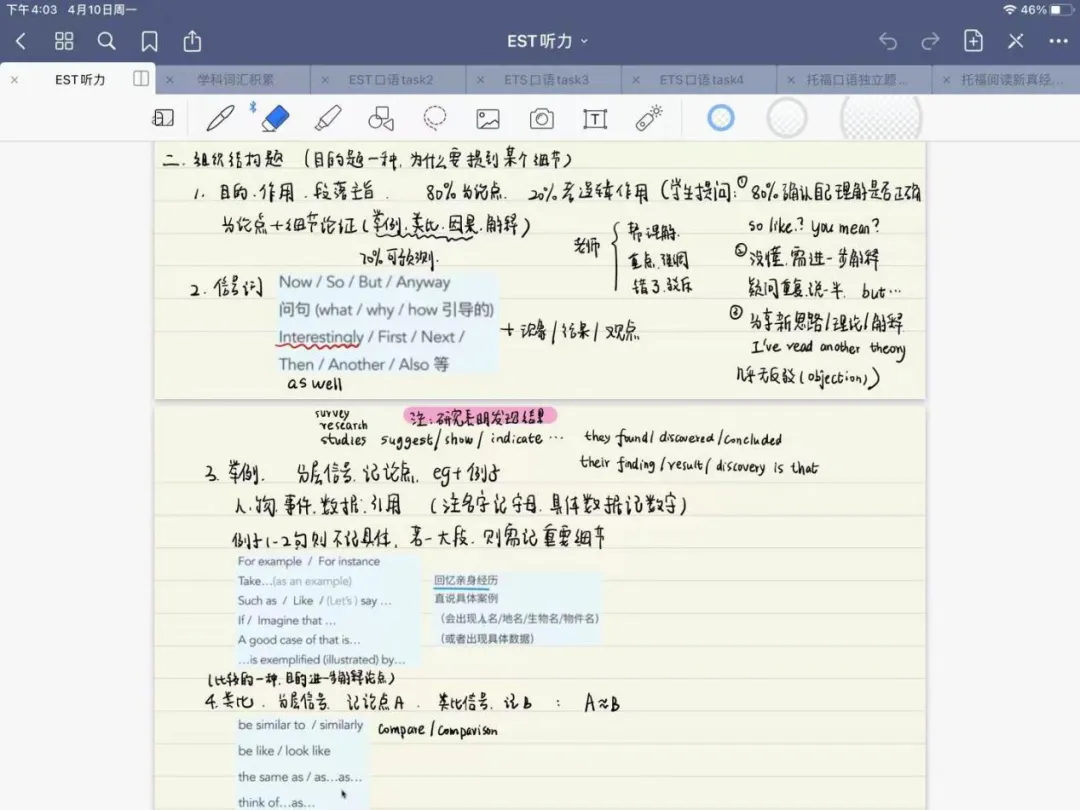 下午4:03 4月10日周一
46%
EST听力
EST听力
学科词汇积累
EST口语task2
ETS口语task3
ETS口语task4
托福口语独立题...
托福阅读新真经...
二.组织结构题 (目的题一种,为什么要提到某个细节)
1. 目的.作用.段落主旨. 80%为论点. 20%考逻辑作用 (学生提问:① 80%确认自己理解是否正确
为论点+细节论证(举例.类比.因果.解释)
so like.? you mean?
70%可预测.
老师
帮理解.
重点.强调
错了.驳斥
②没懂.需进一步解释
疑问重复.说一半. but…
③分享新思路/理论/解释
I've read another theory
几乎无反驳(objection))
2. 信号词
Now / So / But / Anyway
问句 (what / why / how 引导的)
Interestingly / First / Next /
Then / Another / Also 等
+现象/结果/观点
as well
survey
research
studies
注:研究表明发现结果
suggest/show/ indicate … they found/ discovered/concluded
their finding/result/ discovery is that
3. 举例. 分层信号.记论点. eg+例子
人.物.事件.数据.引用 (注名字记字母.具体数据记数字)
例子1-2句则不记具体,若一大段.则需记重要细节
For example / For instance
Take…(as an example)
Such as / Like / (Let's) say …
If / Imagine that …
A good case of that is…
…is exemplified (illustrated) by…
回忆亲身经历
直说具体案例
(会出现人名/地名/生物名/物件名)
(或者出现具体数据)
(比较的一种.目的进一步解释论点)
4.类比. 分层信号. 记论点A. 类比信号.记B : A≈B
be similar to / similarly
compare / comparison
be like / look like
the same as / as…as…
think of…as…